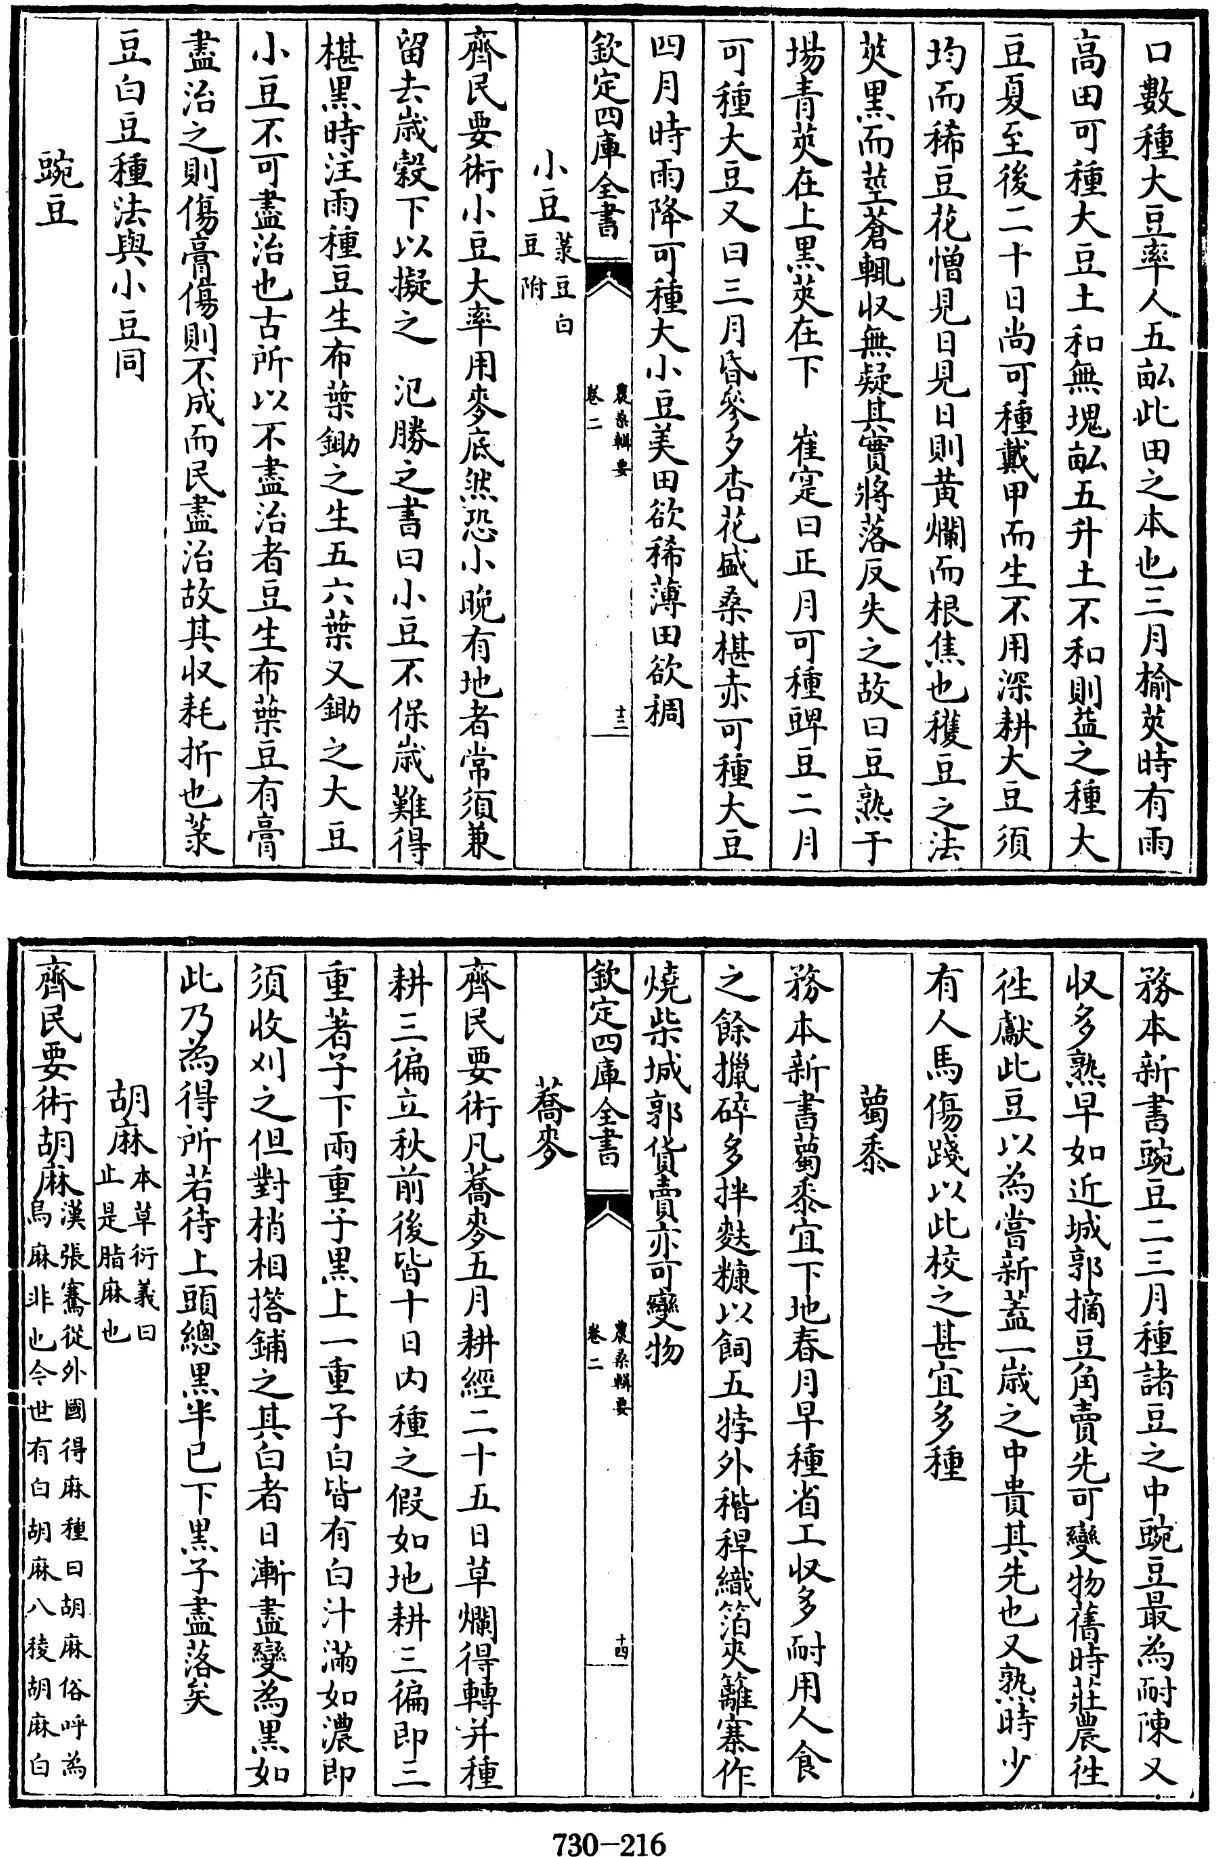 口數種大豆率人五畝此田之本也三月榆莢時有雨
高田可種大豆土和無塊畝五升土不和則益之種大
豆夏至後二十日尚可種戴甲而生不用深耕大豆須
均而稀豆花憎見日見日則黄爛而根焦也穫豆之法
莢黒而莖蒼輙收無疑其實將落反失之故曰豆熟于
場青莢在上黒莢在下　崔寔曰正月可種豍豆二月
可種大豆又曰三月昏參夕杏花盛桑椹赤可種大豆
四月時雨降可種大小豆美田欲稀薄田欲稠
欽定四庫全書
農桑輯要
卷二
十三
小豆菉豆白
豆附
齊民要術小豆大率用麥底然恐小晚有地者常須兼
留去歳穀下以擬之　氾勝之書曰小豆不保歳難得
椹黒時注雨種豆生布葉鋤之生五六葉又鋤之大豆
小豆不可盡治也古所以不盡治者豆生布葉豆有膏
盡治之則傷膏傷則不成而民盡治故其收耗折也菉
豆白豆種法與小豆同
豌豆
務本新書豌豆二三月種諸豆之中豌豆最為耐陳又
收多熟早如近城郭摘豆角賣先可變物舊時莊農往
徃獻此豆以為嘗新蓋一歳之中貴其先也又熟時少
有人馬傷踐以此校之甚宜多種
蜀黍
務本新書蜀黍宜下地春月早種省工收多耐用人食
之餘擸碎多拌麩糠以飼五牸外稭稈織箔夾籬寨作
燒柴城郭貨賣亦可變物
欽定四庫全書
農桑輯要
卷二
十四
蕎麥
齊民要術凡蕎麥五月耕經二十五日草爛得轉并種
耕三徧立秋前後皆十日内種之假如地耕三徧即三
重著子下兩重子黒上一重子白皆有白汁滿如濃即
須收刈之但對梢相搭鋪之其白者日漸盡變為黒如
此乃為得所若待上頭總黒半已下黒子盡落矣
胡麻本草衍義曰
止是脂麻也
齊民要術胡麻漢張騫從外國得麻種曰胡麻俗呼為
烏麻非也今世有白胡麻八稜胡麻白
730-216